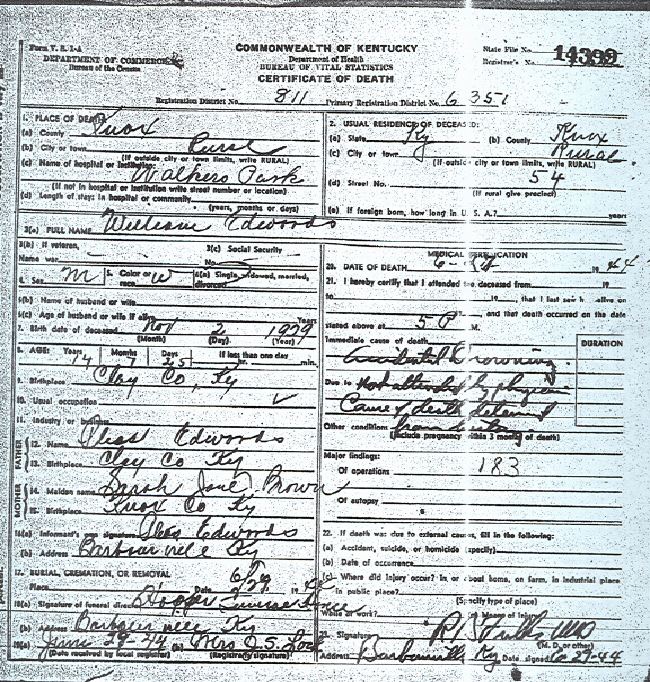 Form V. S. 1-A
DEPARTMENT OF COMMERCE
Bureau of the Census
COMMONWEALTH OF KENTUCKY
Department of Health
BUREAU OF VITAL STATISTICS
CERTIFICATE OF DEATH
State File No. 14399
Registrar's No.
Registration District No. 811 Primary Registration District No. 6351
1. PLACE OF DEATH
(a) County Knox
(b) City or town Rural
(If outside city or town limits, write RURAL)
(c) Name of hospital or institution: Walkers Park
(If not in hospital or institution write street number or location)
(d) Length of stay: in hospital or community
(years, months or days)
2. USUAL RESIDENCE OF DECEASED:
(a) State Ky (b) County Knox
(c) City or town Rural
(If outside city or town limits, write RURAL)
(d) Street No. 54
(If rural give precinct)
(e) If foreign born, how long in U. S. A.? years
3(a) FULL NAME William Edwards
3(b) If veteran,
Name war
3(c) Social Security
No.
4. Sex M 5. Color or race W 6(a) Single, widowed, married, divorced
6(b) Name of husband or wife
6(c) Age of husband or wife if alive Years
7. Birth date of deceased Nov 2 1929
(Month) (Day) (Year)
8. AGE: Years Months Days If less than one day
14 7 25 hr. min.
9. Birthplace Clay Co, Ky
10. Usual occupation
11. Industry or business
FATHER
12. Name Edwards
13. Birthplace Clay Co Ky
MOTHER
14. Maiden name Sarah Jane Brown
15. Birthplace Knox Co Ky
16(a) Informant's own signature Edwards
(b) Address Barbourville Ky
17. BURIAL, CREMATION, OR REMOVAL
Place Date 6/29 1944
18(a) Signature of funeral director Hopper
(b) Address Barbourville Ky
19(a) June 29-44 (b) Mrs O. S.
(Date received by local registrar) (Registrar's signature)
MEDICAL CERTIFICATION
20. DATE OF DEATH 6- 1944
21. I hereby certify that I attended the deceased from 19
to 19, that I last saw h alive on
and that death occurred on the date
stated above at 5 P M.
DURATION
Immediate cause of death
Accidental Drowning
Due to Not attended by physician
Cause of death determined
Other conditions from
(Include pregnancy within 3 months of death)
Major findings:
Of operations 183
Of autopsy
22. If death was due to external causes, fill in the following:
(a) Accident, suicide, or homicide (specify)
(b) Date of occurrence
(c) Where did injury occur? In or about home, on farm, in industrial place
in public place?
(Specify type of place)
While at work? Means of injury
23. Signature MD
(M. D. or other)
Address Barbourville Ky Date signed 6-29-44